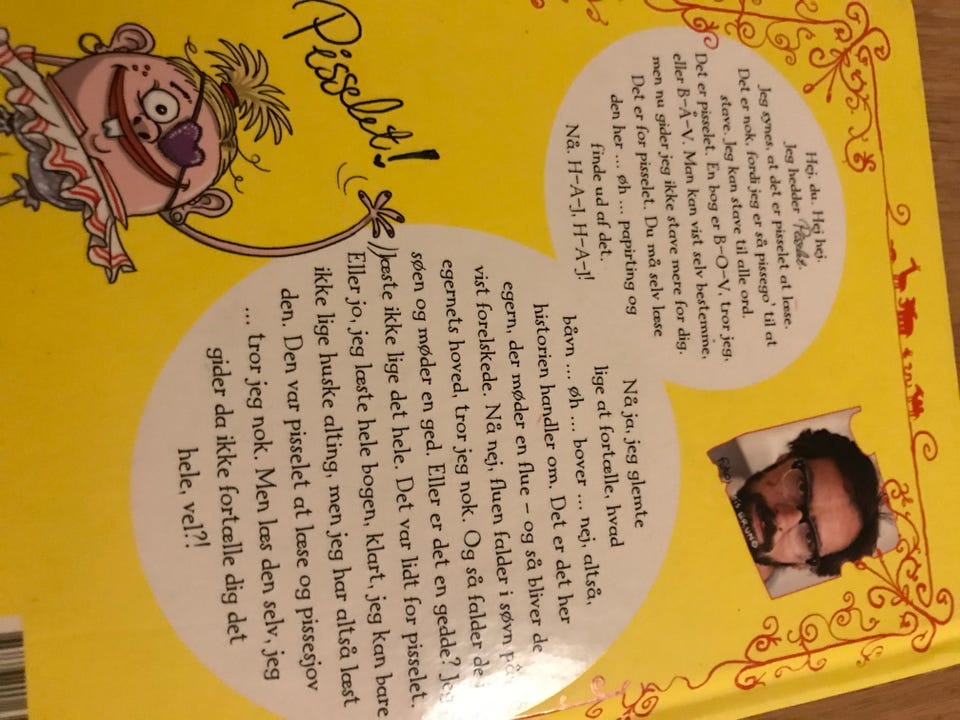 Pisselet!
Hej, du. Hej hej.
Jeg hedder
Jeg synes, at det er pisselet at læse.
Det er nok, fordi jeg er så pissego' til at
stave. Jeg kan stave til alle ord.
Det er pisselet. En bog er B-O-V, tror jeg,
eller B-Å-V. Man kan vist selv bestemme,
men nu gider jeg ikke stave mere for dig.
Det er for pisselet. Du må selv læse
den her ... øh ... papirting og
finde ud af det.
Nå. H-A-J, H-A-J!
Nå ja, jeg glemte
lige at fortælle, hvad
båvn ... øh ... bover ... nej, altså,
historien handler om. Det er det her
egern, der møder en flue – og så bliver de
vist forelskede. Nå nej, fluen falder i søvn på
egernets hoved, tror jeg nok. Og så falder de i
søen og møder en ged. Eller er det en gedde? Jeg
læste ikke lige det hele. Det var lidt for pisselet.
Eller jo, jeg læste hele bogen, klart, jeg kan bare
ikke lige huske alting, men jeg har altså læst
den. Den var pisselet at læse og pissesjov
... tror jeg nok. Men læs den selv, jeg
gider da ikke fortælle dig det
hele, vel?!